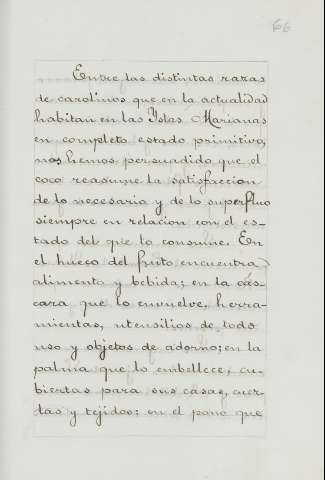 66
Entre las distintas razas
de carolinos que en la actualidad
habitan en las Yslas Marianas
en completo estado primitivo,
nos hemos persuadido que el
coco reasume la satisfaccion
de lo necesario y de lo superfluo
siempre en relacion con el es-
tado del que lo consume. En
el hueco del fruto encuentra
alimento y bebida; en la cás-
cara que lo envuelve, herra-
mientas, utensilios de todo
uso y objetos de adorno; en la
palma que lo embellece, cu-
biertas para sus casas, cuer-
das y tejidos: en el pono que